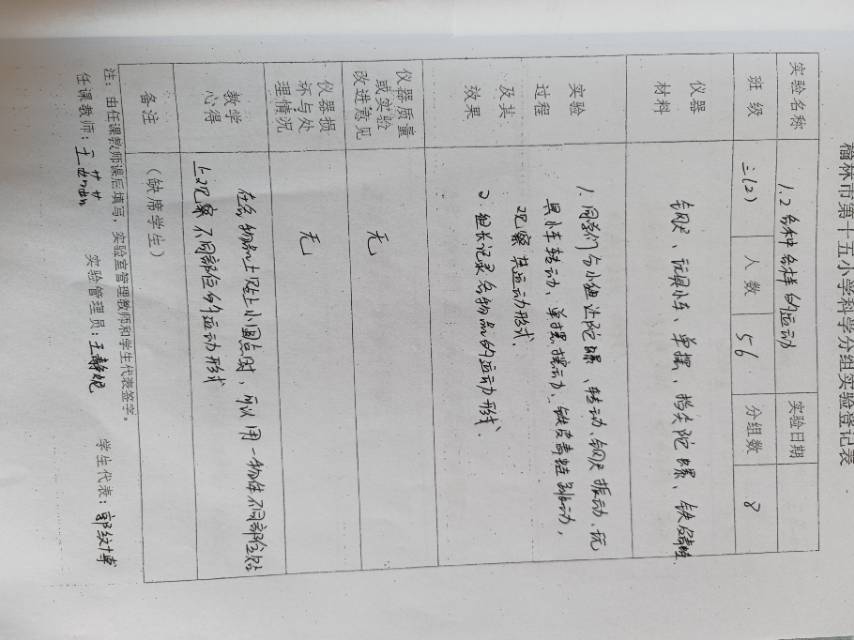 榆林市第十五小学科学分组实验登记表
实验名称 1.2 各种各样的运动 实验日期
班级 三(2) 人数 56 分组数 8
仪器
材料
钢尺、玩具小车、单摆、指尖陀螺、铁皮青蛙
实验
过程
及其
效果
1.同学们分小组让陀螺、转动、钢尺振动、玩
具小车转动、单摆摆动、铁皮青蛙跳动,
观察其运动形式.
2.组长记录各物品的运动形式.
仪器质量
或实验
改进意见
无
仪器损
坏与处
理情况
无
教学
心得
在各物品上贴上小圆点时,可以用一物体不同部位贴
上观察不同部位的运动形式
备注
(缺席学生)
注:由任课教师课后填写,实验室管理教师和学生代表签字。
任课教师:王 实验管理员:王静 学生代表:郭